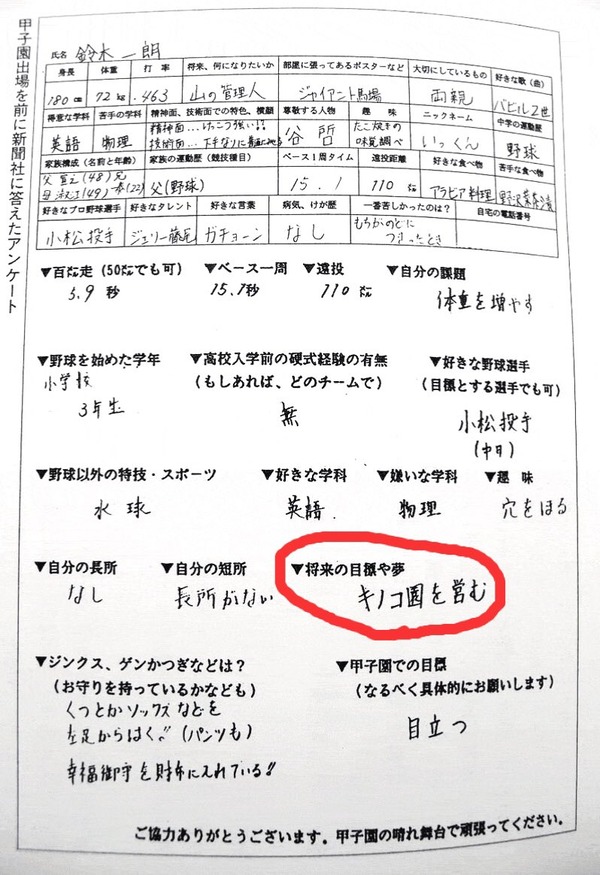 甲子園出場を前に新聞社に答えたアンケート
氏名 鈴木一朗
身長 体重 打率 将来、何になりたいか 部屋に張ってあるポスターなど 大切にしているもの 好きな歌(曲)
180cm 72kg .463 山の管理人 ジャイアント馬場 両親 バビル2世
得意な学科 苦手の学科 精神面、技術面での特色、横顔 尊敬する人物 趣味 ニックネーム 中学の運動歴
英語 物理 精神面…けっこう強い!! 谷 哲 たこ焼きの いっくん 野球
技術面… 味覚調べ
家族構成(名前と年齢) 家族の運動歴(競技種目) ベース1周タイム 遠投距離 好きな食べ物 苦手な食べ物
父 宣之(48) 兄
母 淑江(49) 一泰(22) 父(野球) 15.1 110㍍ アラビア料理 野沢菜茶漬
好きなプロ野球選手 好きなタレント 好きな言葉 病気、けが歴 一番苦しかったのは? 自宅の電話番号
小松投手 ジェリー藤尾 ガチョーン なし もちがのどに
つまったとき
▼百㍍走(50㍍でも可) ▼ベース一周 ▼遠投 ▼自分の課題
5.9秒 15.1秒 110㍍ 体重を増やす
▼野球を始めた学年 ▼高校入学前の硬式経験の有無 ▼好きな野球選手
小学校 (もしあれば、どのチームで) (目標とする選手でも可)
3年生 無 小松投手
(中日)
▼野球以外の特技・スポーツ ▼好きな学科 ▼嫌いな学科 ▼趣味
水球 英語 物理 穴をほる
▼自分の長所 ▼自分の短所 ▼将来の目標や夢
なし 長所がない キノコ園を営む
▼ジンクス、ゲンかつぎなどは? ▼甲子園での目標
(お守りを持っているかなども) (なるべく具体的にお願いします)
くつとかソックスなどを 目立つ
左足からはく!! (パンツも)
幸福御守を財布に入れている!!
ご協力ありがとうございます。甲子園の晴れ舞台で頑張ってください。